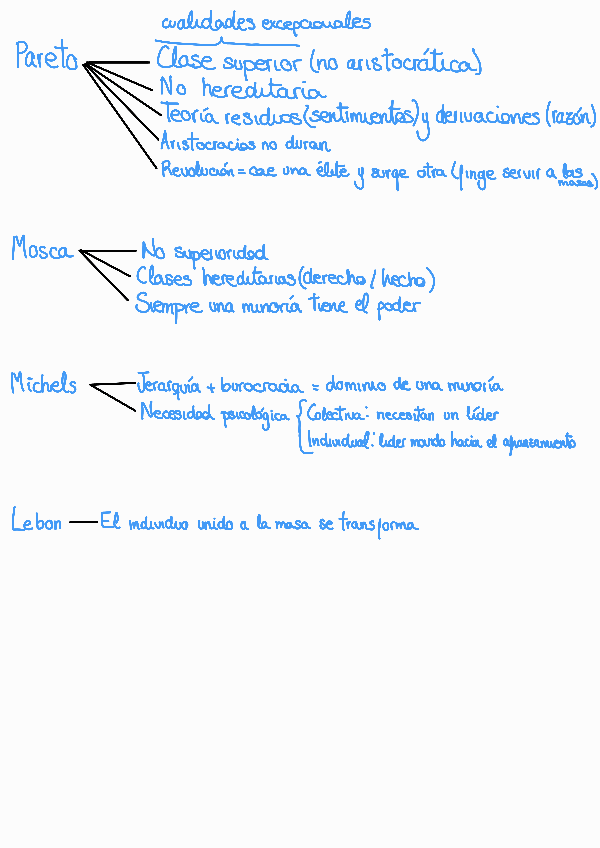 cualidades excepcionales
Pareto
Clase superior (no aristocrática)
No hereditaria
Teoría residuos (sentimientos) y derivaciones (razón)
Aristocracias no duran
Revolución = cae una élite y surge otra (finge servir a las masas)
Mosca
No superioridad
Clases hereditarias (derecho / hecho)
Siempre una minoría tiene el poder
Michels
Jerarquía + burocracia = dominio de una minoría
Necesidad psicológica
Colectiva: necesitan un líder
Individual: líder mando hacia el
Lebon
El individuo unido a la masa se transforma